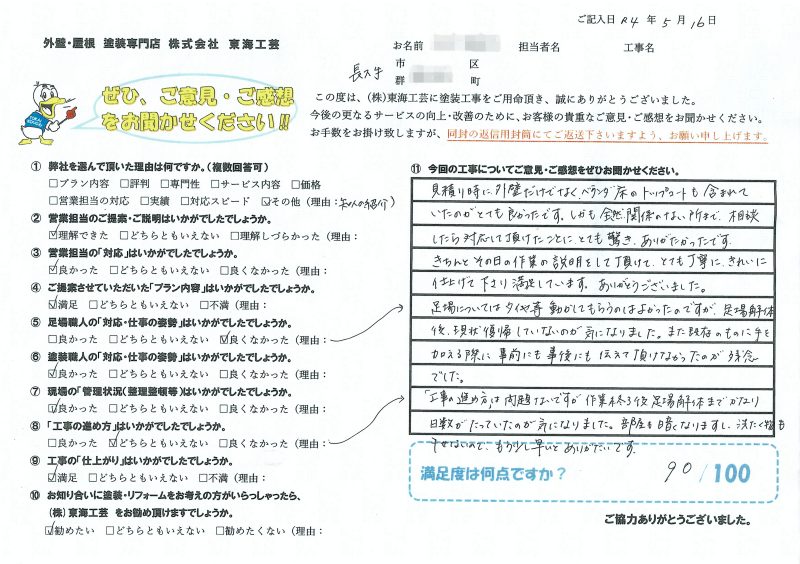 ご記入日 R4 年 5 月 16 日
外壁・屋根 塗装専門店 株式会社 東海工芸
お名前 担当者名 工事名
長久手 市 区
郡 町
ぜひ、ご意見・ご感想
をお聞かせください!!
この度は、(株)東海工芸に塗装工事をご用命頂き、誠にありがとうございました。
今後の更なるサービスの向上・改善のために、お客様の貴重なご意見・ご感想をお聞かせください。
お手数をお掛け致しますが、同封の返信用封筒にてご返送下さいますよう、お願い申し上げます。
① 弊社を選んで頂いた理由は何ですか。(複数回答可)
□プラン内容 □評判 □専門性 □サービス内容 □価格
□営業担当の対応 □実績 □対応スピード ☑その他(理由:友人の紹介)
② 営業担当のご提案・ご説明はいかがでしたでしょうか。
☑理解できた □どちらともいえない □理解しづらかった(理由:
③ 営業担当の「対応」はいかがでしたでしょうか。
☑良かった □どちらともいえない □良くなかった(理由:
④ ご提案させていただいた「プラン内容」はいかがでしたでしょうか。
☑満足 □どちらともいえない □不満(理由:
⑤ 足場職人の「対応・仕事の姿勢」はいかがでしたでしょうか。
□良かった □どちらともいえない ☑良くなかった(理由:
⑥ 塗装職人の「対応・仕事の姿勢」はいかがでしたでしょうか。
☑良かった □どちらともいえない □良くなかった(理由:
⑦ 現場の「管理状況(整理整頓等)はいかがでしたでしょうか。
☑良かった □どちらともいえない □良くなかった(理由:
⑧ 「工事の進め方」はいかがでしたでしょうか。
□良かった ☑どちらともいえない □良くなかった(理由:
⑨ 工事の「仕上がり」はいかがでしたでしょうか。
☑満足 □どちらともいえない □不満(理由:
⑩ お知り合いに塗装・リフォームをお考えの方がいらっしゃったら、
(株)東海工芸 をお勧め頂けますでしょうか。
☑勧めたい □どちらともいえない □勧めたくない(理由:
⑪ 今回の工事についてご意見・ご感想をぜひお聞かせください。
見積り時に、外壁だけでなく、ベランダ床のトップコートも含まれて
いたのがとても良かったです。しかも全然関係のない所まで、相談
したら対応して頂けたことに、とても驚き、ありがたかったです。
きちんとその日の作業の説明をして頂けて、とても丁寧に、きれいに
仕上げて下さり満足しています。ありがとうございました。
足場についてはタイヤ等動かしてもらうのはよかったのですが、足場解体
後、現状復帰していないのが気になりました。また既存のものに手を
加える際に事前にも事後にも伝えて頂けなかったのが残念
でした。
「工事の進め方」は問題ないですが作業終了後足場解体までかなり
日数がたっていたのが気になりました。部屋も暗くなりますし、洗たく物も
干せないので、もう少し早いとありがたいです。
満足度は何点ですか? 90/100
ご協力ありがとうございました。